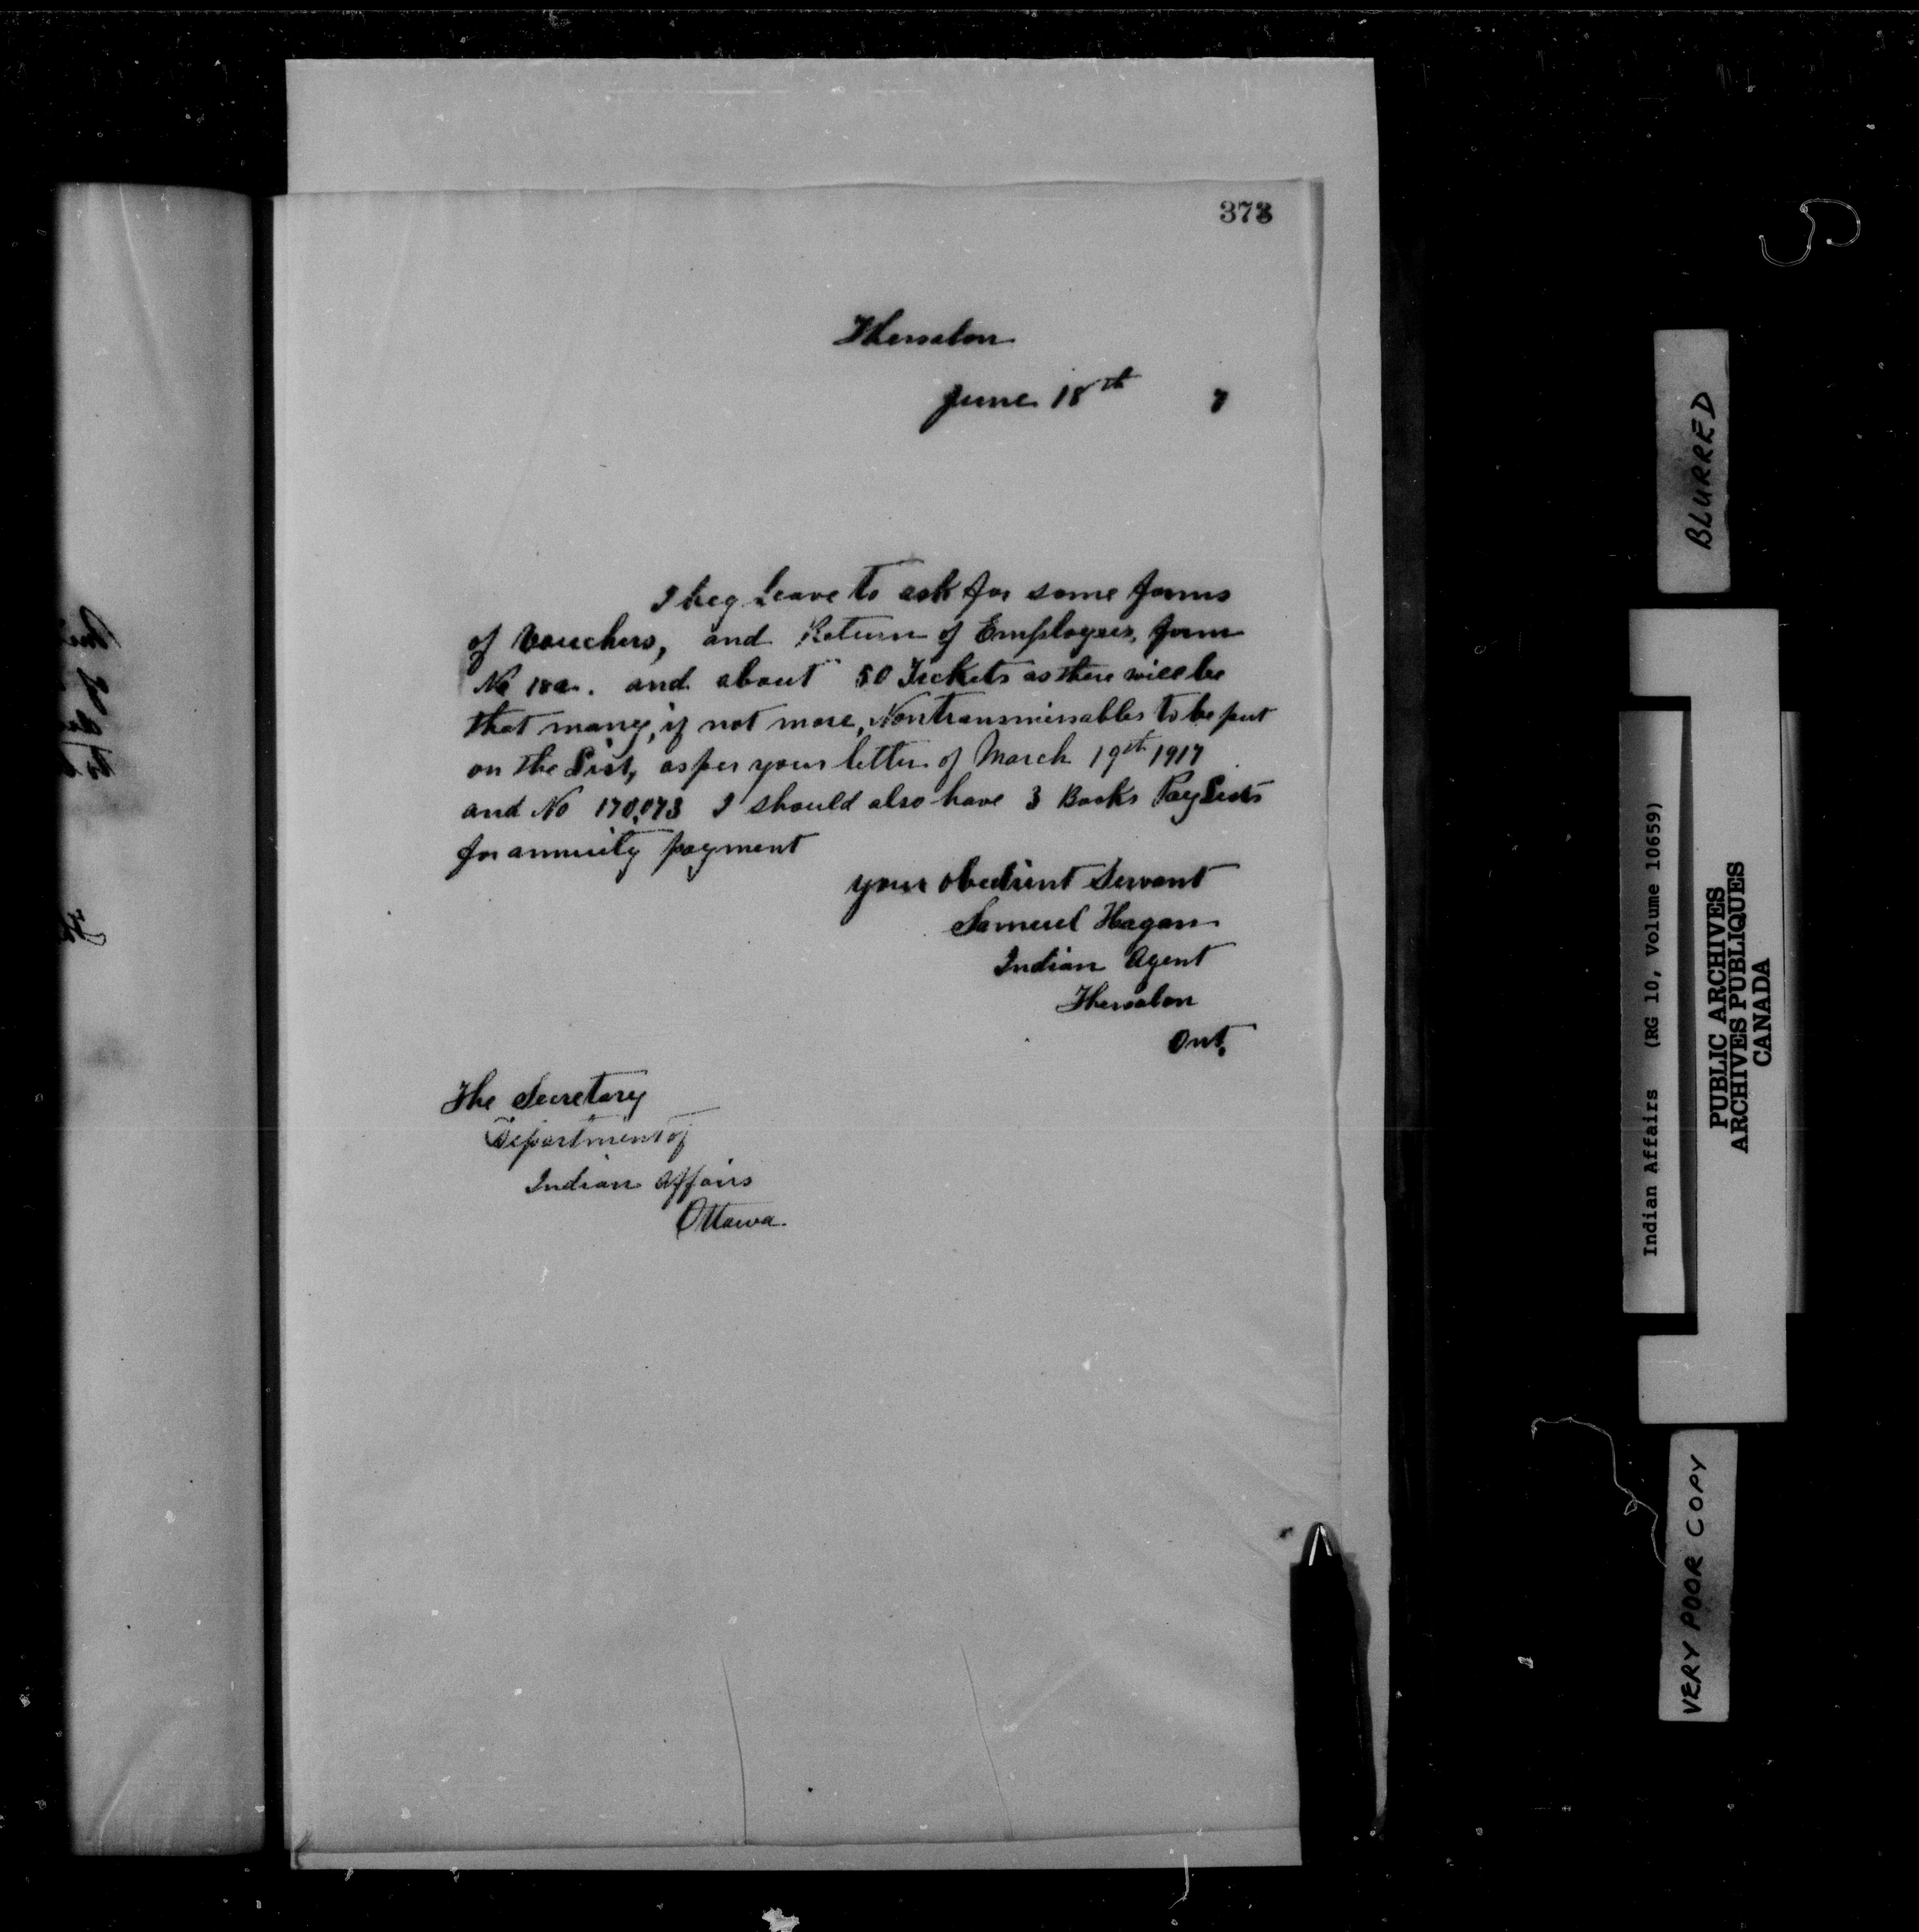 373
Thessalon
June 18th 7
I beg leave to ask for some forms
of Vouchers, and Return of Employees, form
No 18a. and about 50 Tickets as there will be
that many, if not more, Nontransmissables to be put
on the List, as per your letter of March 19th 1917
and No 170,073 I should also have 3 Books Pay Lists
for annuity payment
your obedient Servant
Samuel Hagan
Indian Agent
Thessalon
Ont.
The Secretary
Department of
Indian Affairs
Ottawa.
BLURRED
Indian Affairs (RG 10, Volume 10659)
PUBLIC ARCHIVES
ARCHIVES PUBLIQUES
CANADA
VERY POOR COPY